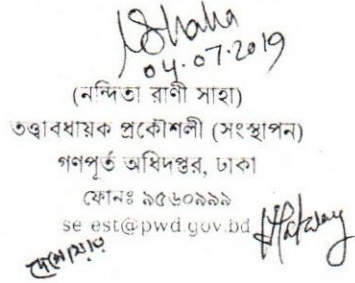 04.07.2019
(নন্দিতা রাণী সাহা)
তত্ত্বাবধায়ক প্রকৌশলী (সংস্থাপন)
গণপূর্ত অধিদপ্তর, ঢাকা
ফোনঃ ৯৫৬০৯৯৯
se est@pwd.gov.bd